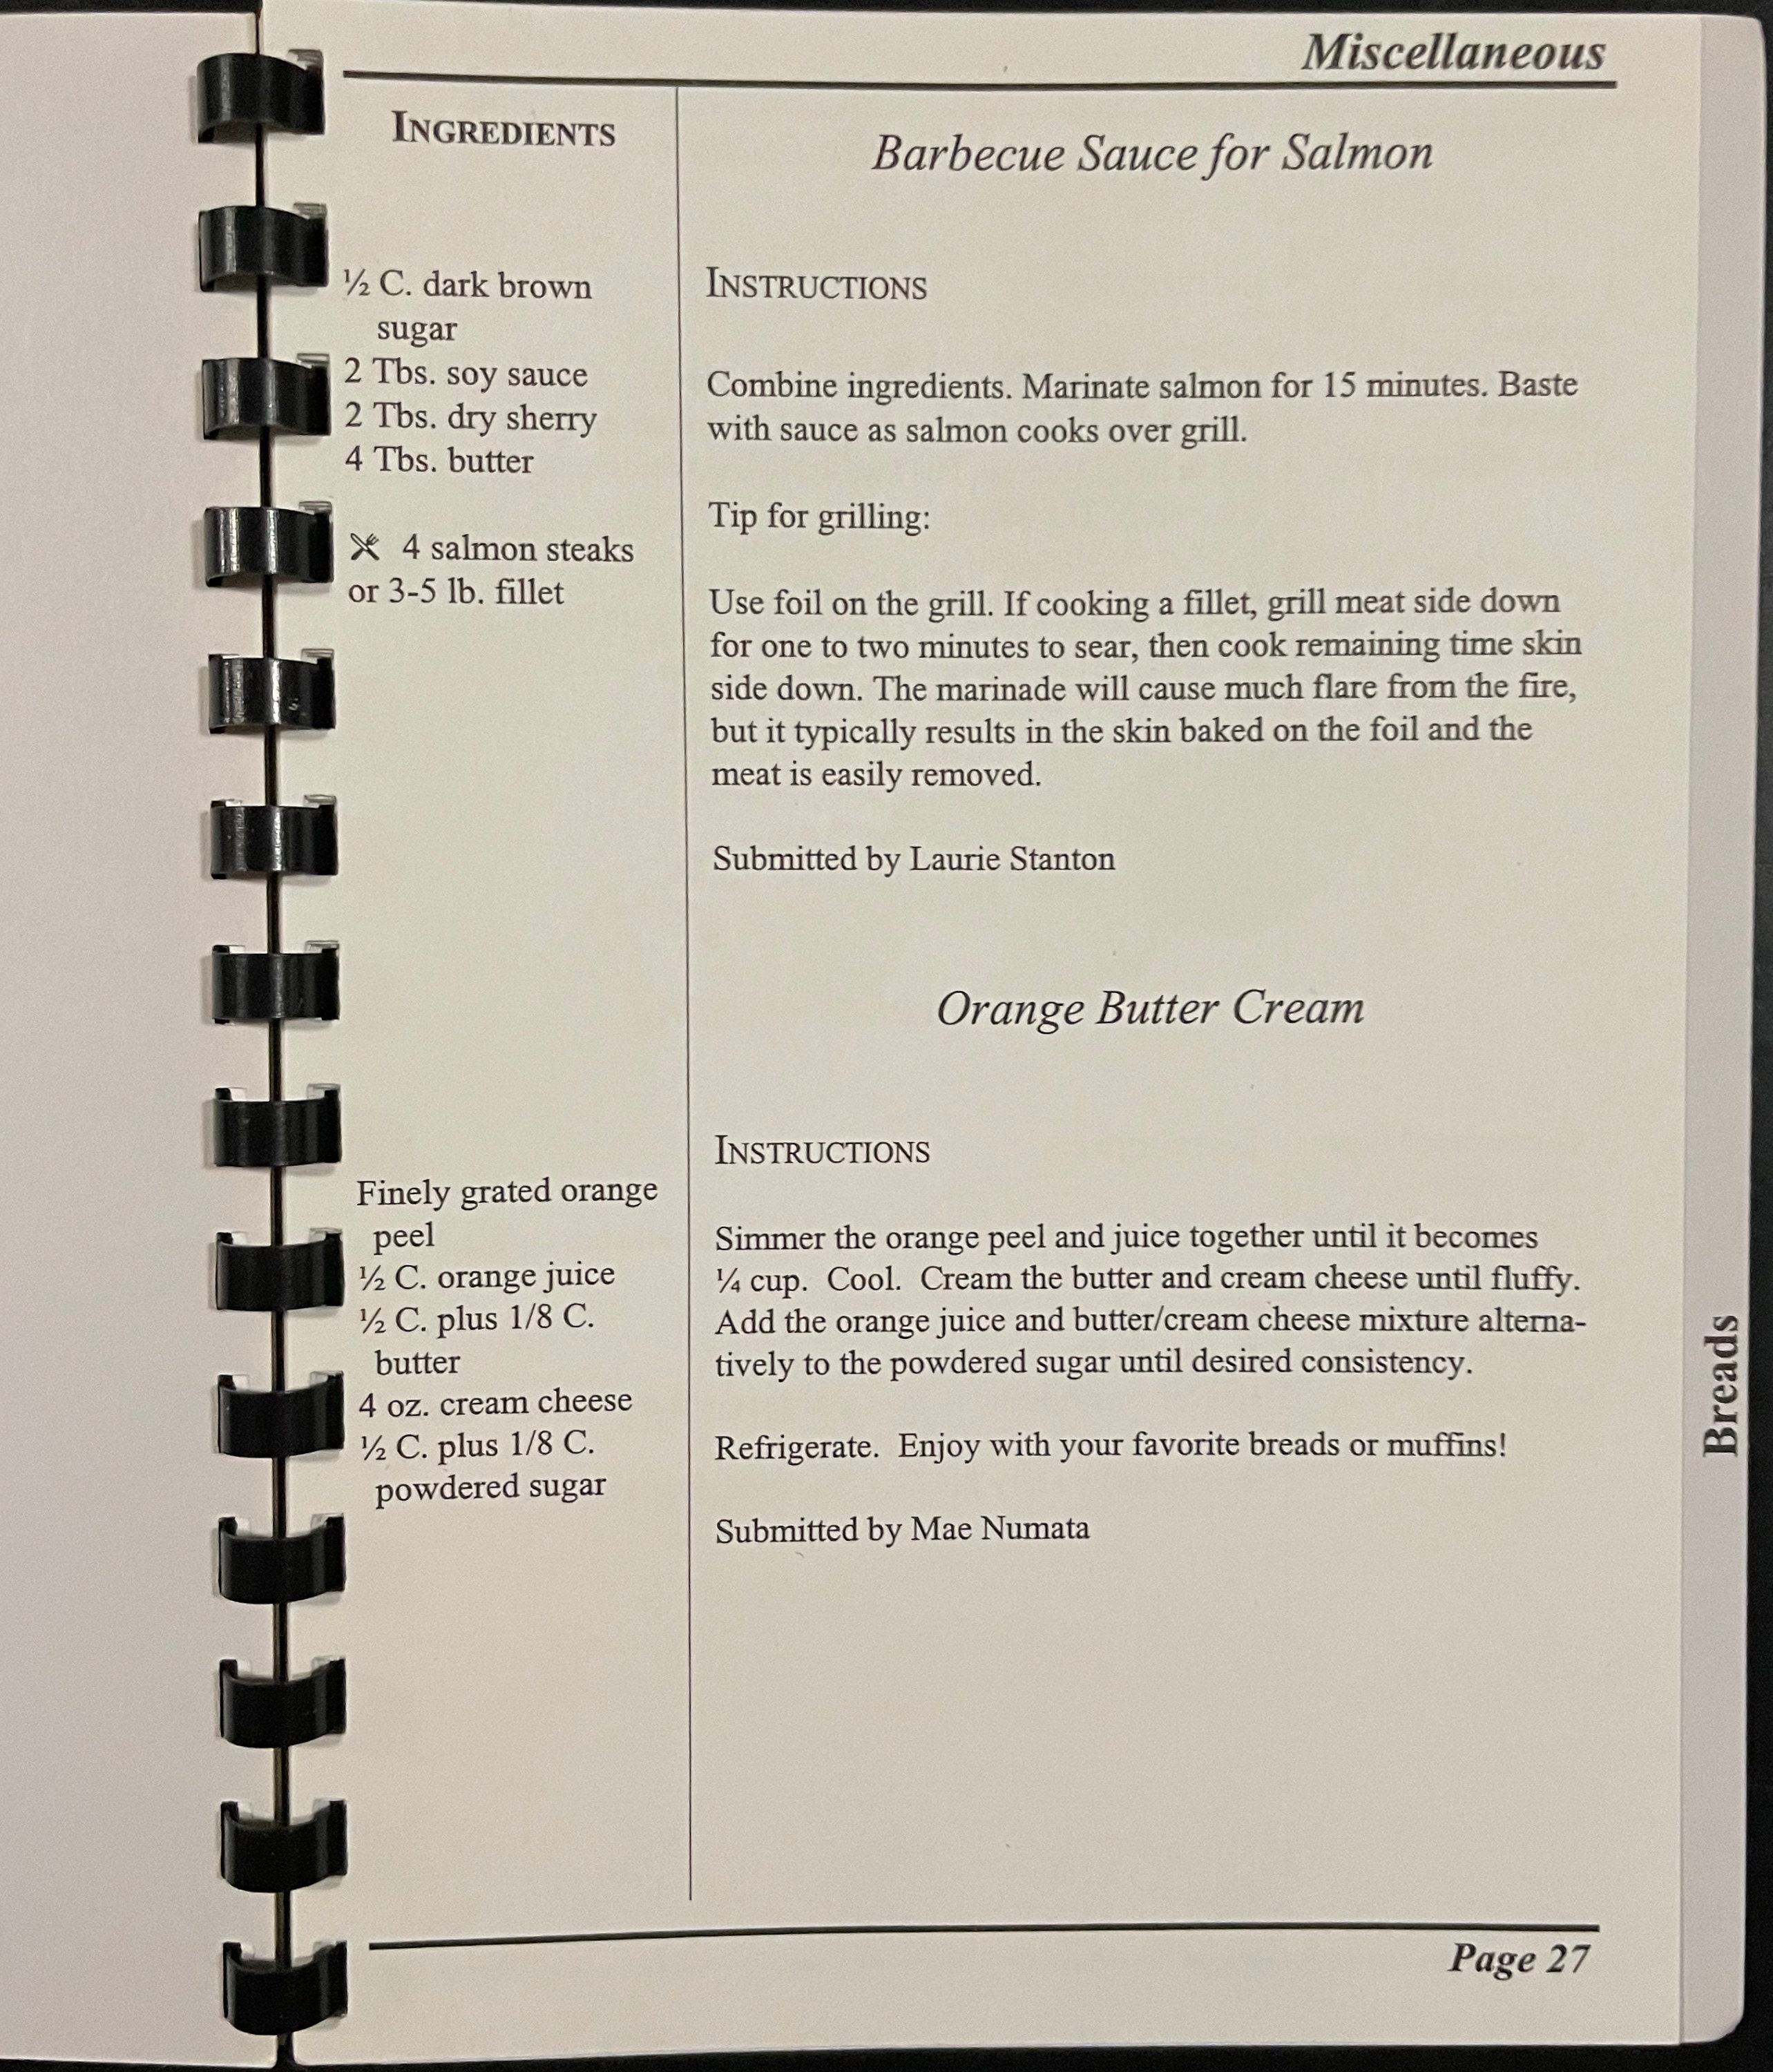 Miscellaneous
INGREDIENTS
Barbecue Sauce for Salmon
½ C. dark brown
sugar
2 Tbs. soy sauce
2 Tbs. dry sherry
4 Tbs. butter
4 salmon steaks
or 3-5 lb. fillet
INSTRUCTIONS
Combine ingredients. Marinate salmon for 15 minutes. Baste
with sauce as salmon cooks over grill.
Tip for grilling:
Use foil on the grill. If cooking a fillet, grill meat side down
for one to two minutes to sear, then cook remaining time skin
side down. The marinade will cause much flare from the fire,
but it typically results in the skin baked on the foil and the
meat is easily removed.
Submitted by Laurie Stanton
Orange Butter Cream
Finely grated orange
peel
½ C. orange juice
½ C. plus 1/8 C.
butter
4 oz. cream cheese
½ C. plus 1/8 C.
powdered sugar
INSTRUCTIONS
Simmer the orange peel and juice together until it becomes
¼ cup.  Cool.  Cream the butter and cream cheese until fluffy.
Add the orange juice and butter/cream cheese mixture alterna-
tively to the powdered sugar until desired consistency.
Refrigerate.  Enjoy with your favorite breads or muffins!
Submitted by Mae Numata
Breads
Page 27